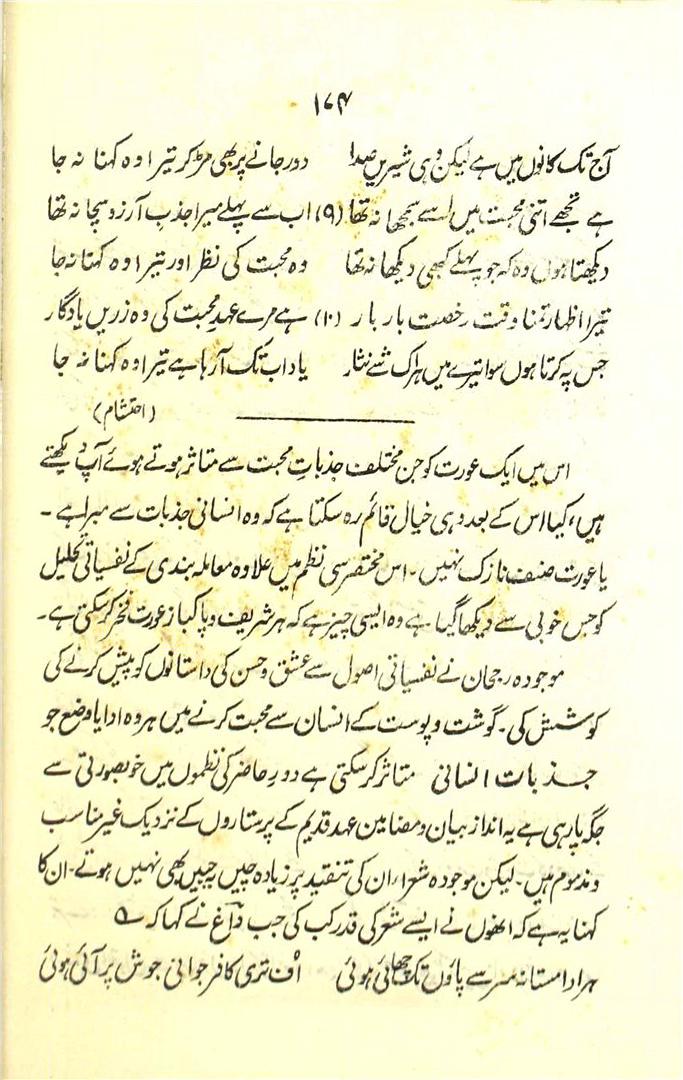 ۱۷۴
آج تک کانوں میں ہے لیکن وہی شیریں صدا دور جانے پر بھی مڑ کر تیرا وہ کہنا نہ جا
ہے تجھے اتنی محبت میں اسے سمجھا نہ تھا (۹) اب سے پہلے میرا جذب آرزو سچا نہ تھا
دیکھتا ہوں وہ کہ جو پہلے کبھی دیکھا نہ تھا وہ محبت کی نظر اور تیرا وہ کہنا نہ جا
تیرا اظہار تمنا وقت رخصت بار بار (۱۰) ہے مرے عہد محبت کی وہ زریں یادگار
جس پہ کرتا ہوں سوا تیرے میں ہر اک شے نثار یاد اب تک آ رہا ہے تیرا وہ کہنا نہ جا
(احتشام)
اس میں ایک عورت کو جن مختلف جذباتِ محبت سے متاثر ہوتے ہوئے آپ دیکھتے
ہیں، کیا اس کے بعد وہی خیال قائم رہ سکتا ہے کہ وہ انسانی جذبات سے مبرا ہے ۔
یا عورت صنف نازک نہیں ۔ اس مختصر سی نظم میں علاوہ معاملہ بندی کے نفسیاتی تحلیل
کو جس خوبی سے دیکھا گیا ہے وہ ایسی چیز ہے کہ ہر شریف و پاکباز عورت فخر کر سکتی ہے ۔
موجودہ رجحان نے نفسیاتی اصول سے عشق و حسن کی داستانوں کو پیش کرنے کی
کوشش کی ۔ گوشت و پوست کے انسان سے محبت کرنے میں ہر وہ ادا یا وضع جو
جذبات انسانی متاثر کر سکتی ہے دورِ حاضر کی نظموں میں خوبصورتی سے
جگہ پا رہی ہے یہ انداز بیان و مضامین عہد قدیم کے پرستاروں کے نزدیک غیر مناسب
و مذموم ہیں ۔ لیکن موجودہ شعراء ان کی تنقید پر زیادہ چیں بجبیں بھی نہیں ہوتے ۔ ان کا
کہنا یہ ہے کہ انھوں نے ایسے شعر کی قدر کب کی جب داغ نے کہا کہ ؎
ہر ادا مستانہ سر سے پاؤں تک چھائی ہوئی اُف تری کافر جوانی جوش پر آئی ہوئی